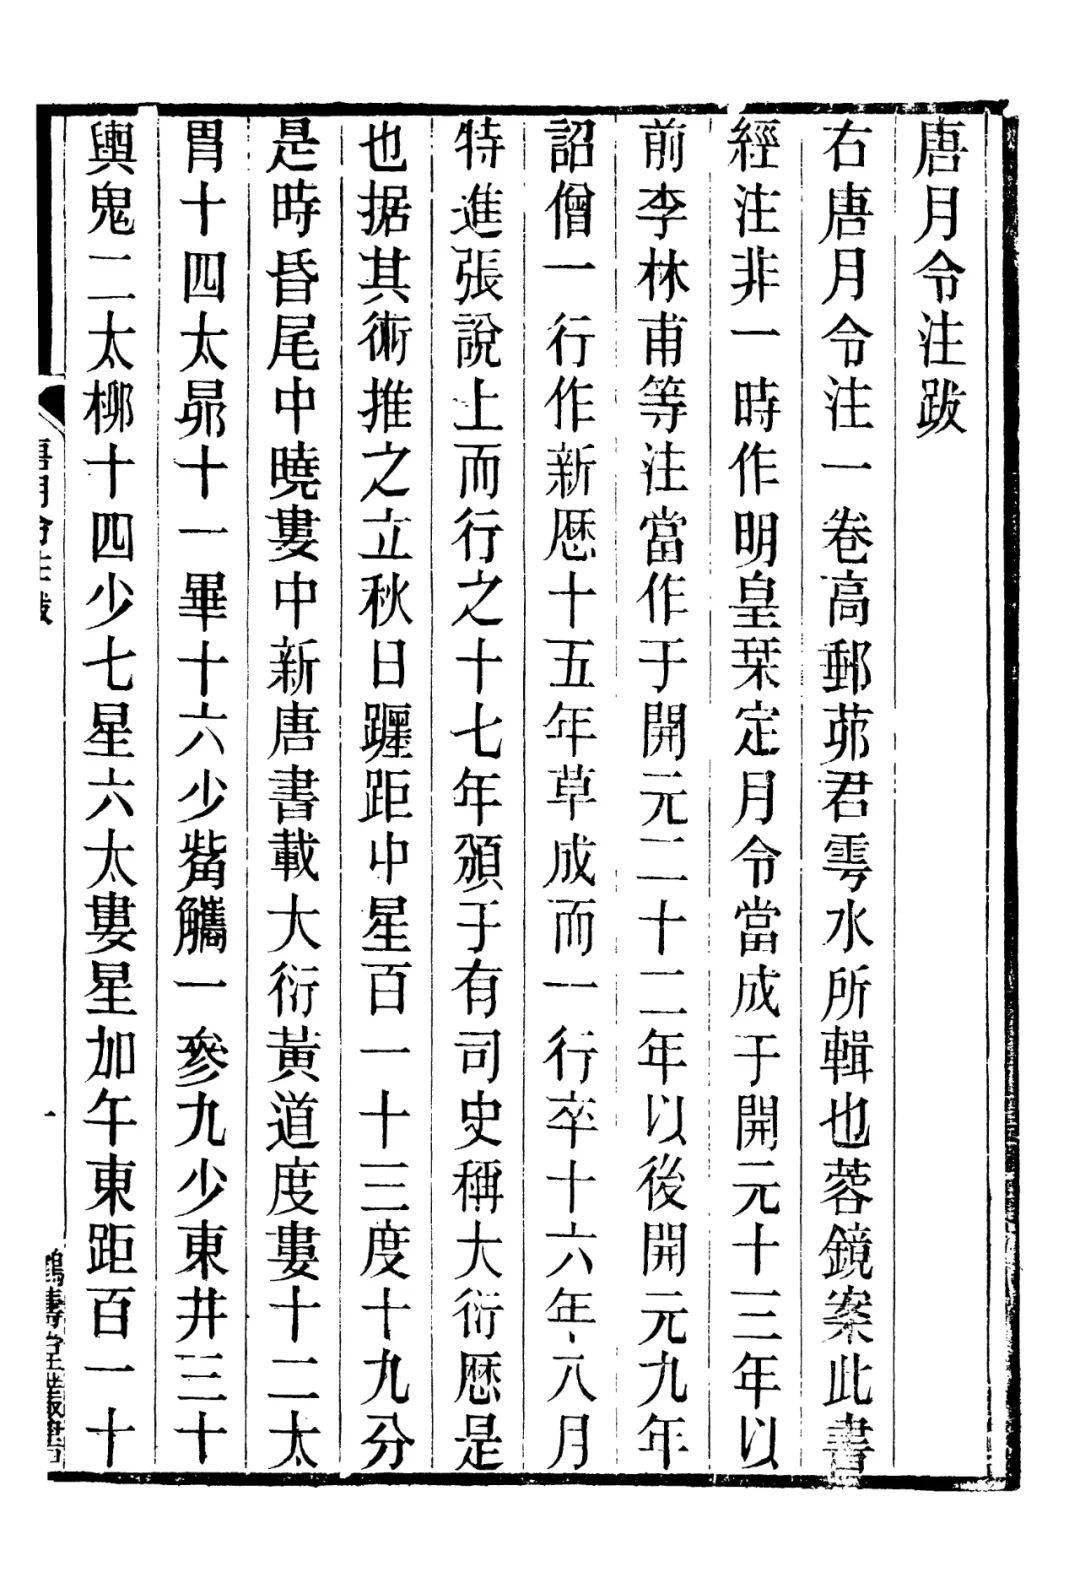 唐月令注跋
右唐月令注一卷高郵茆君雩水所輯也蓉鏡案此書
經注非一時作明皇栞定月令當成于開元十三年以
前李林甫等注當作于開元二十二年以後開元九年
詔僧一行作新厯十五年草成而一行卒十六年八月
特進張說上而行之十七年頒于有司史稱大衍厯是
也据其術推之立秋日躔距中星百一十三度十九分
是時昏尾中曉婁中新唐書載大衍黃道度婁十二太
胃十四太昴十一畢十六少觜觿一參九少東井三十
輿鬼二太柳十四少七星六太婁星加午東距百一十
唐月令注跋
一
鶴壽堂叢書